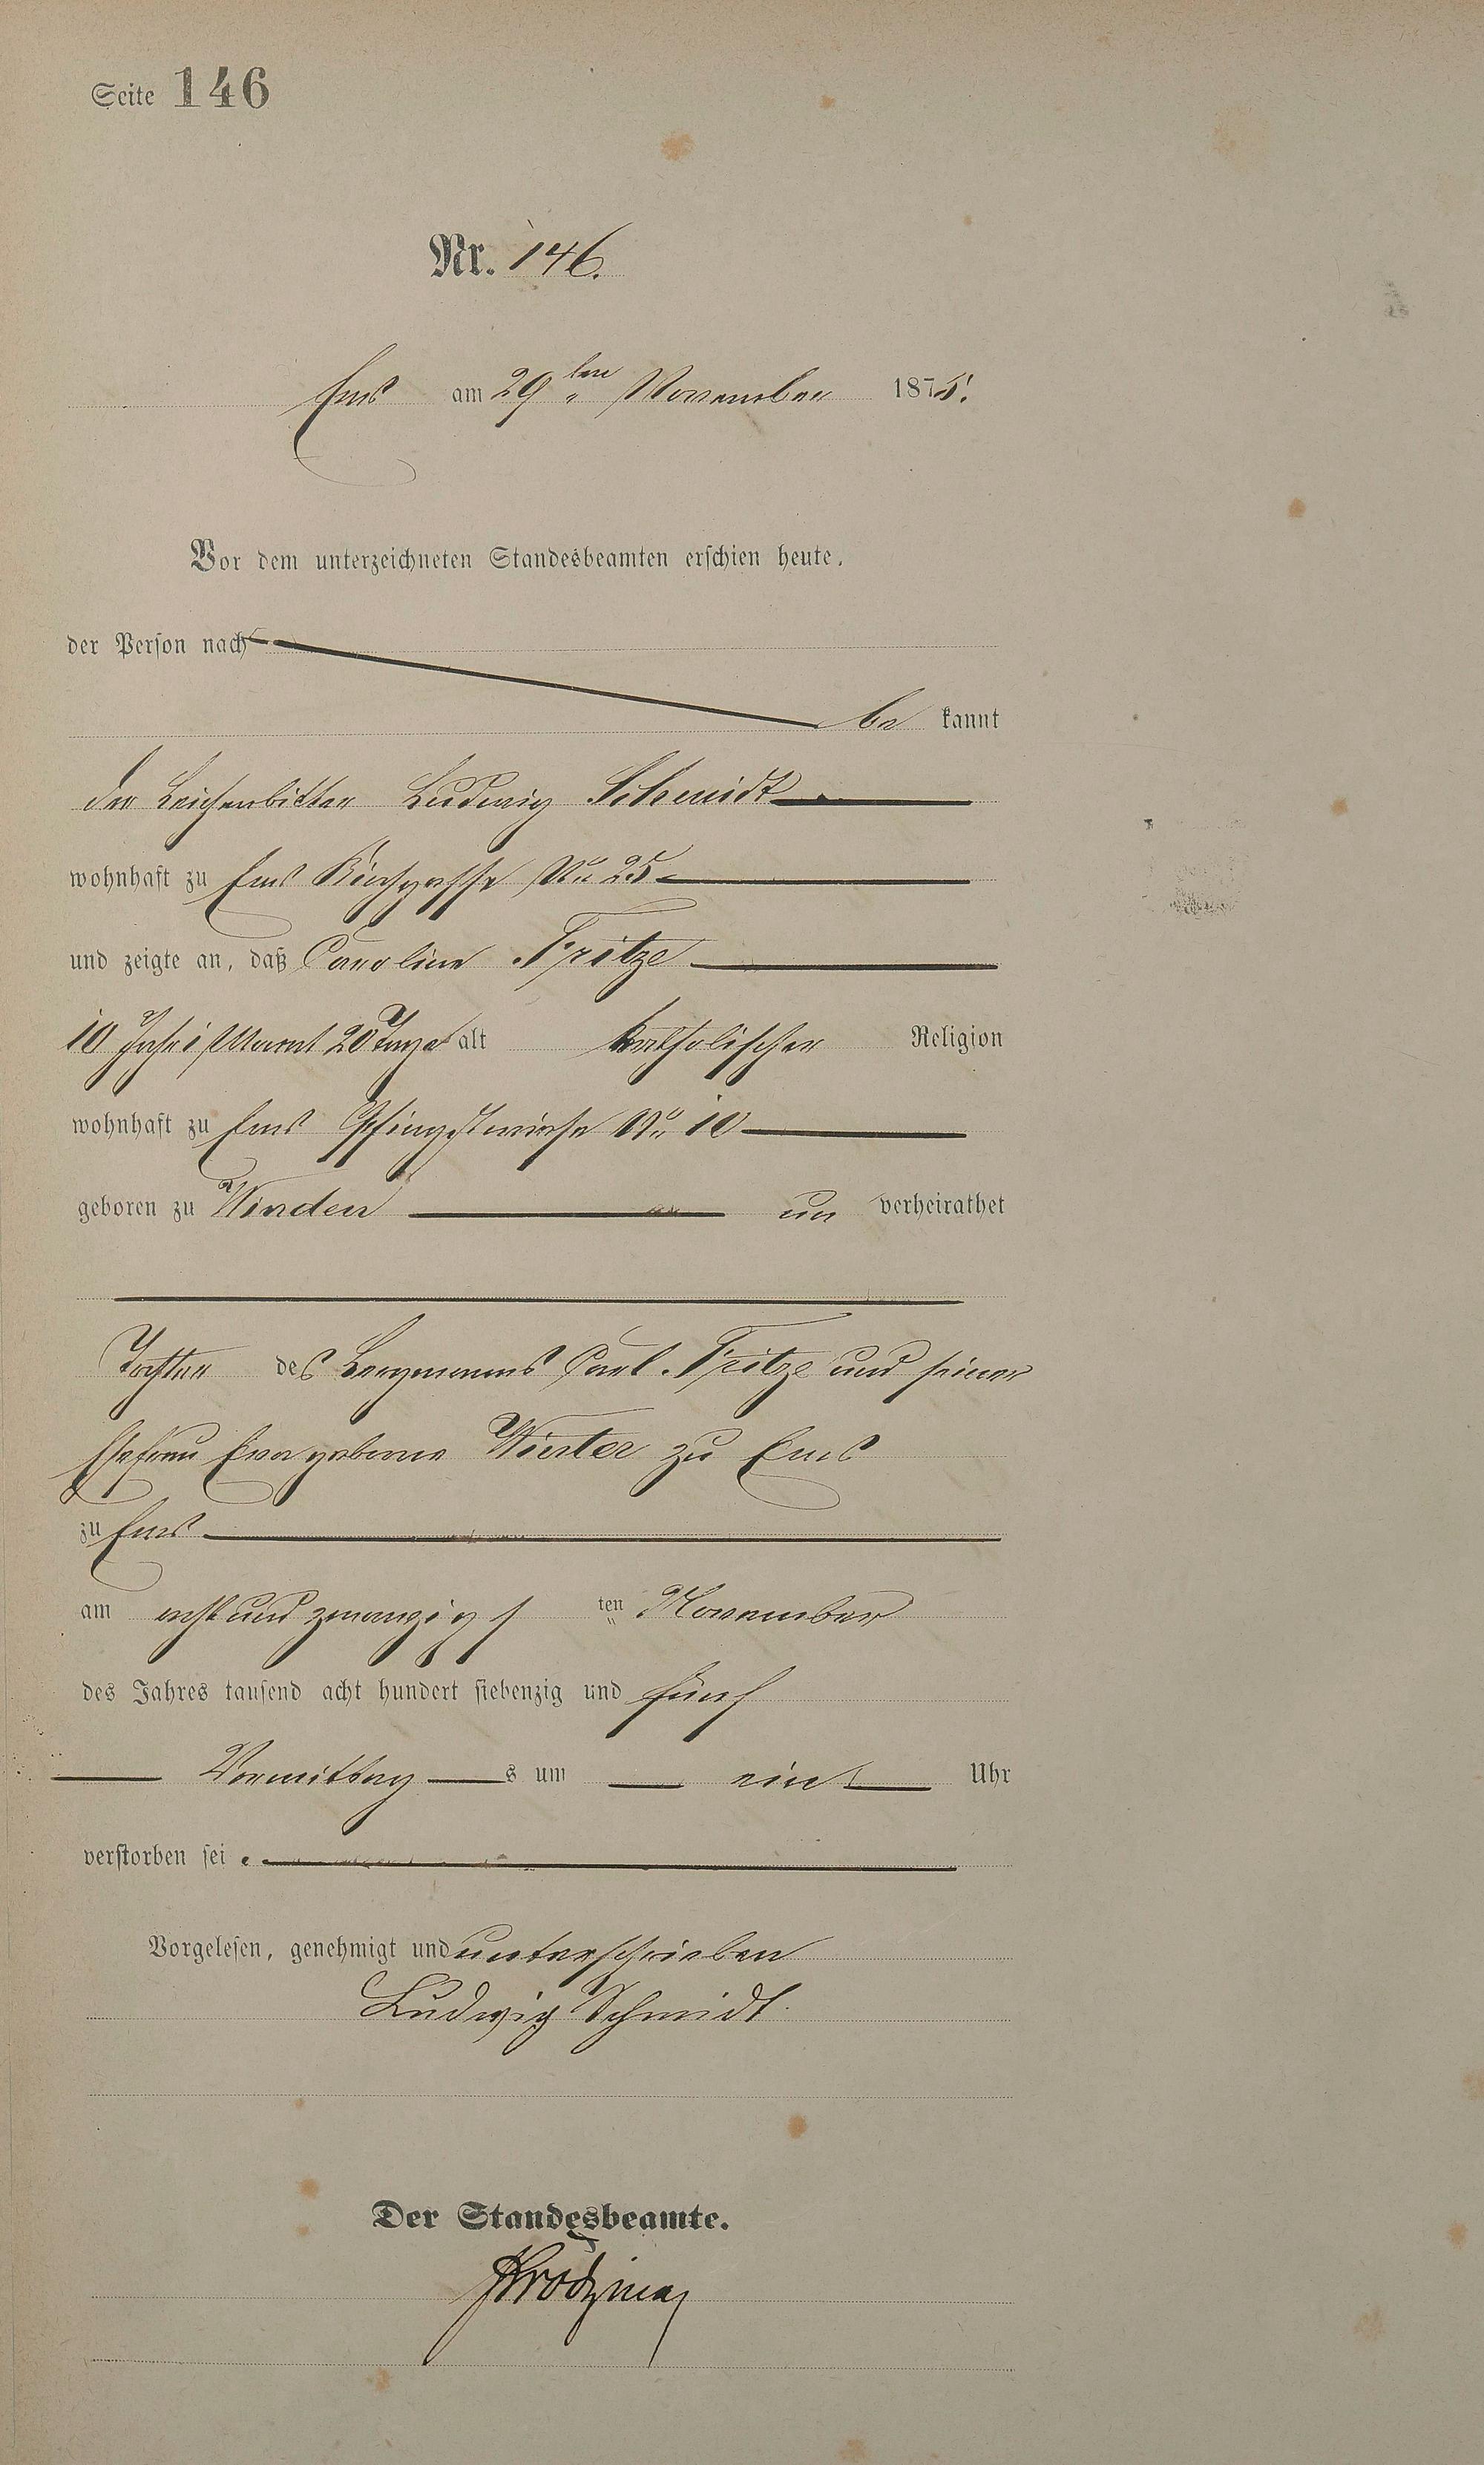 Seite 146
Nr. 146.
Ems am 29ten November 1875.
Vor dem unterzeichneten Standesbeamten erschien heute,
der Person nach
be kannt
der Leichenbitter Ludwig Schmidt
wohnhaft zu Ems Kirchgasse No 25
und zeigte an, daß Caroline Fritze
10 Jahr 1 Monat 20 Tage alt katholischer Religion
wohnhaft zu Ems Pfingstwiese No 10
geboren zu Winden un verheirathet
Tochter des Bergmanns Carl Fritze und seiner
Ehefrau Eva geborne zu Ems
zu Ems
am acht und zwanzigs ten November
des Jahres tausend acht hundert siebenzig und fünf
Vormittag s um ein Uhr
verstorben sei.
Vorgelesen, genehmigt und unterschrieben
Ludwig Schmidt.
Der Standesbeamte.